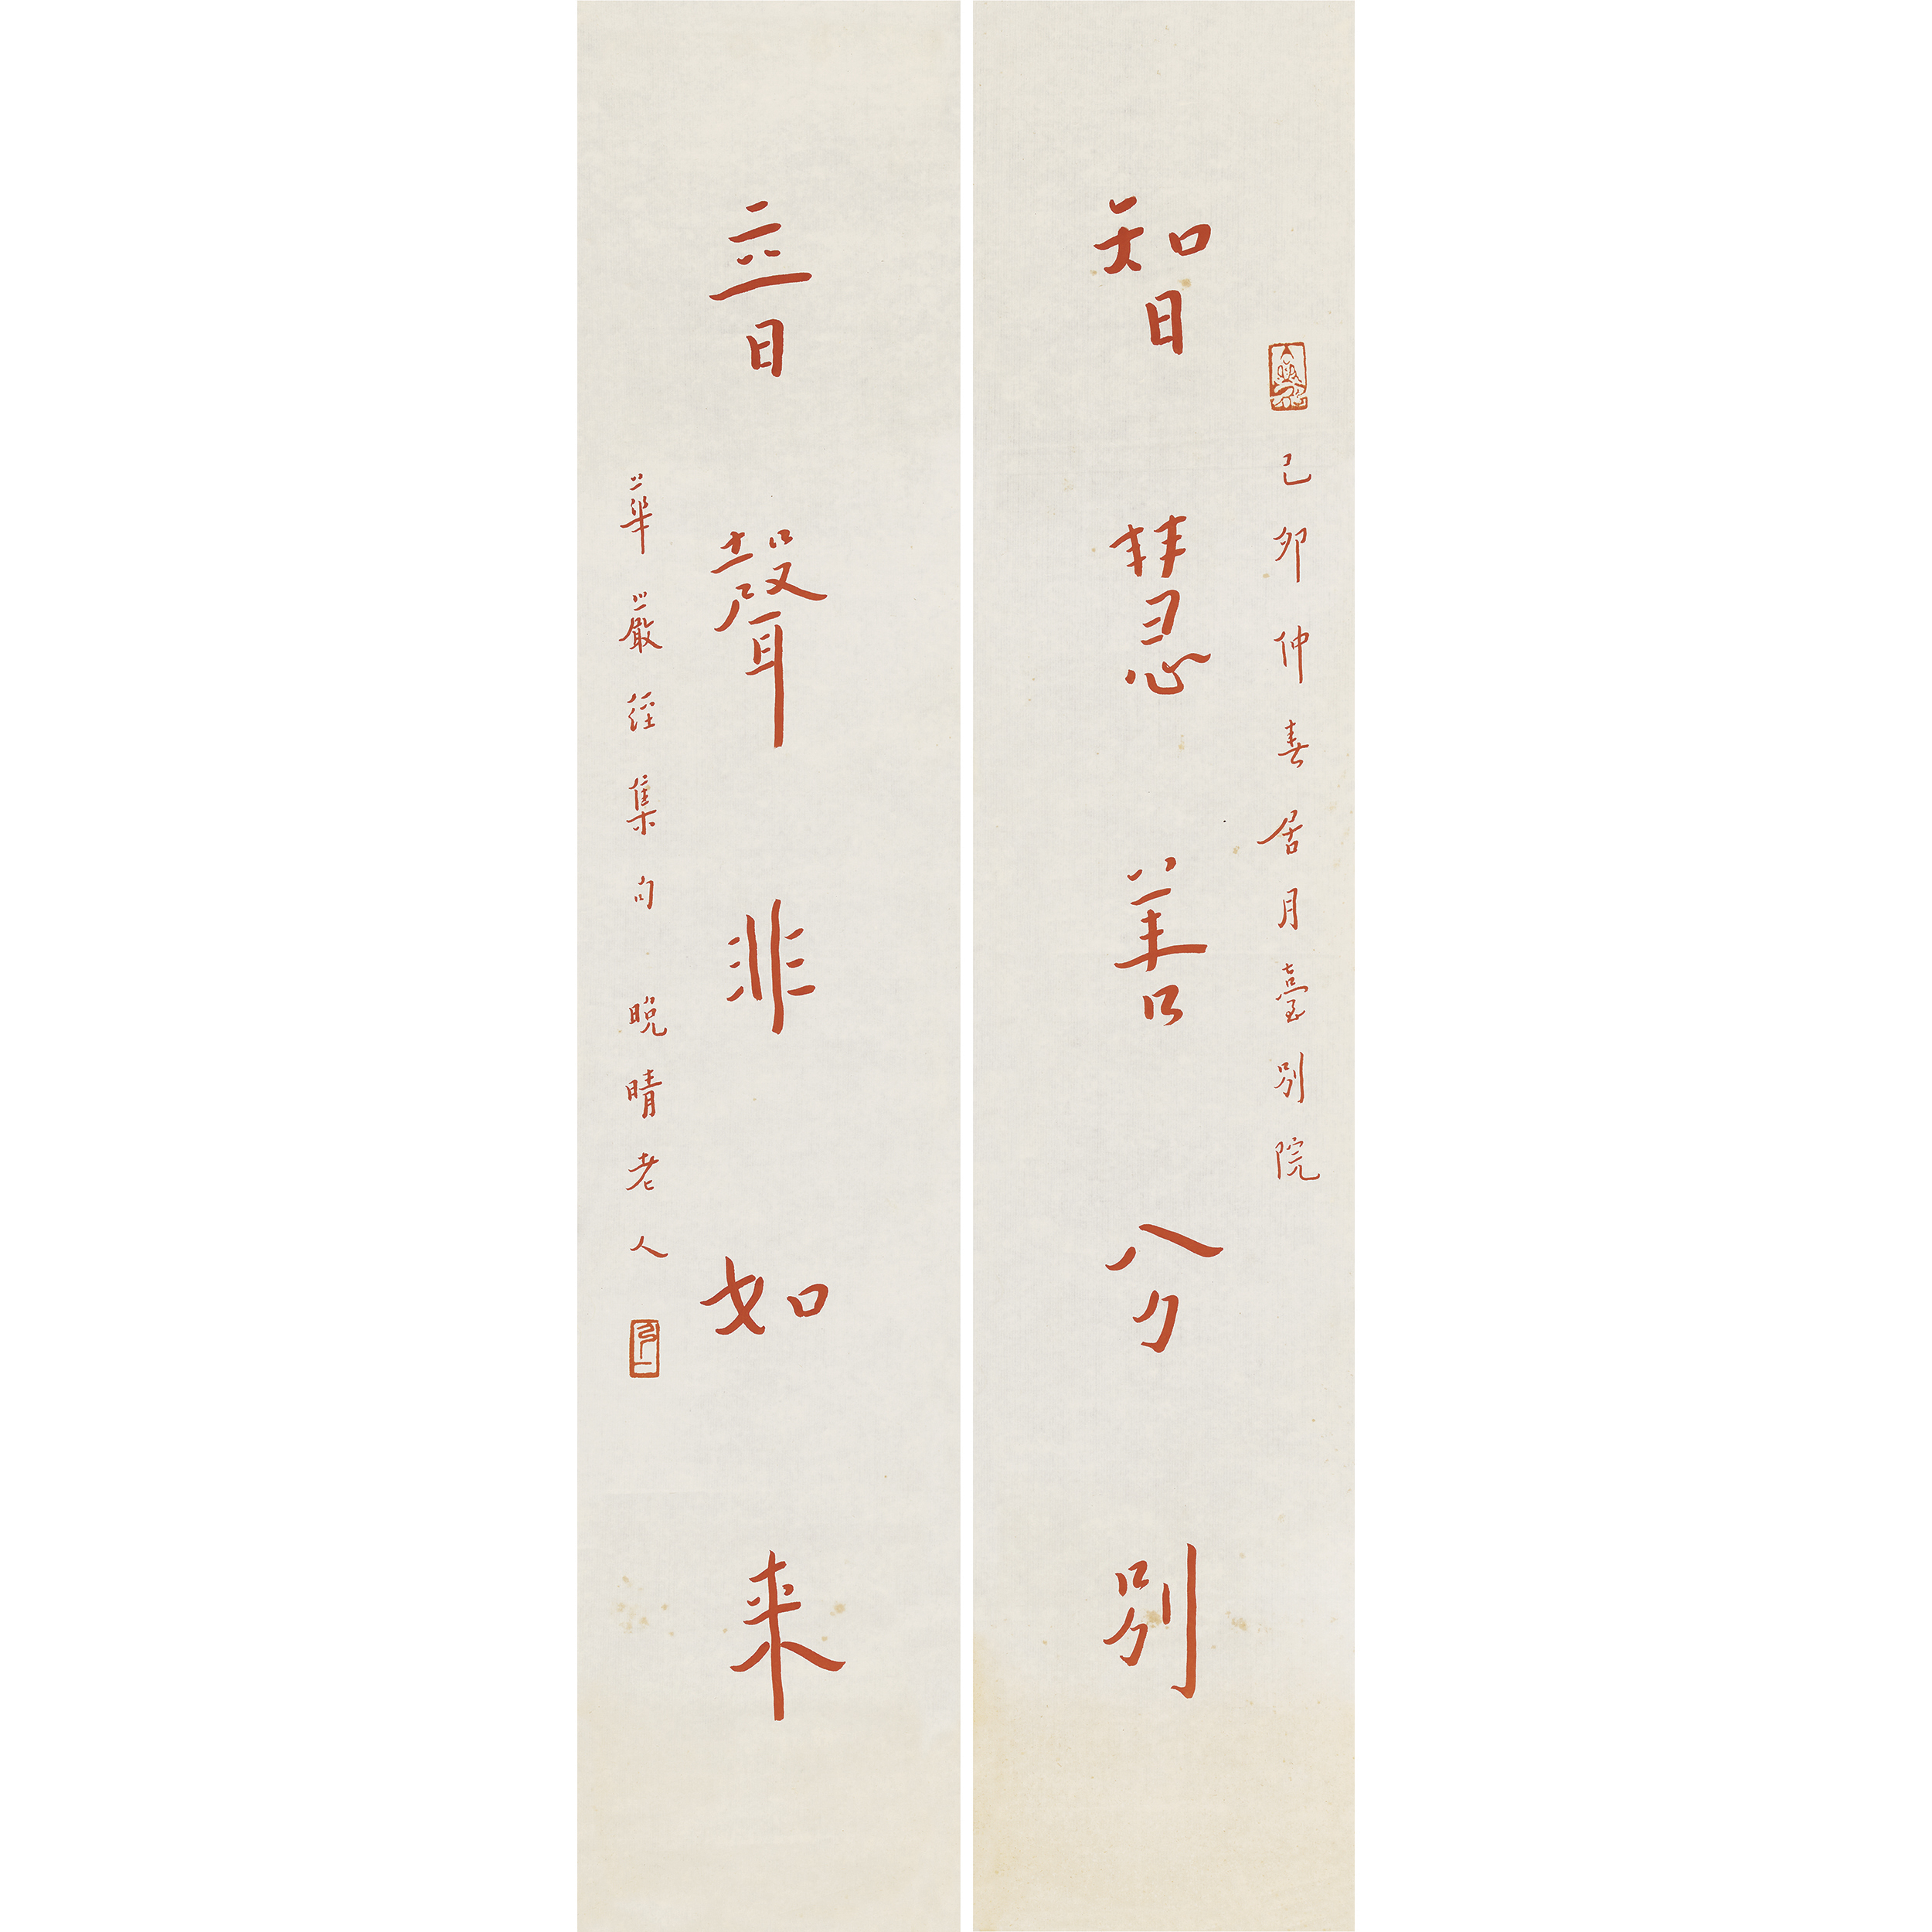 己卯仲春居月臺別院
智慧善分別
音聲非如来
華嚴經集句 晚晴老人
弘一